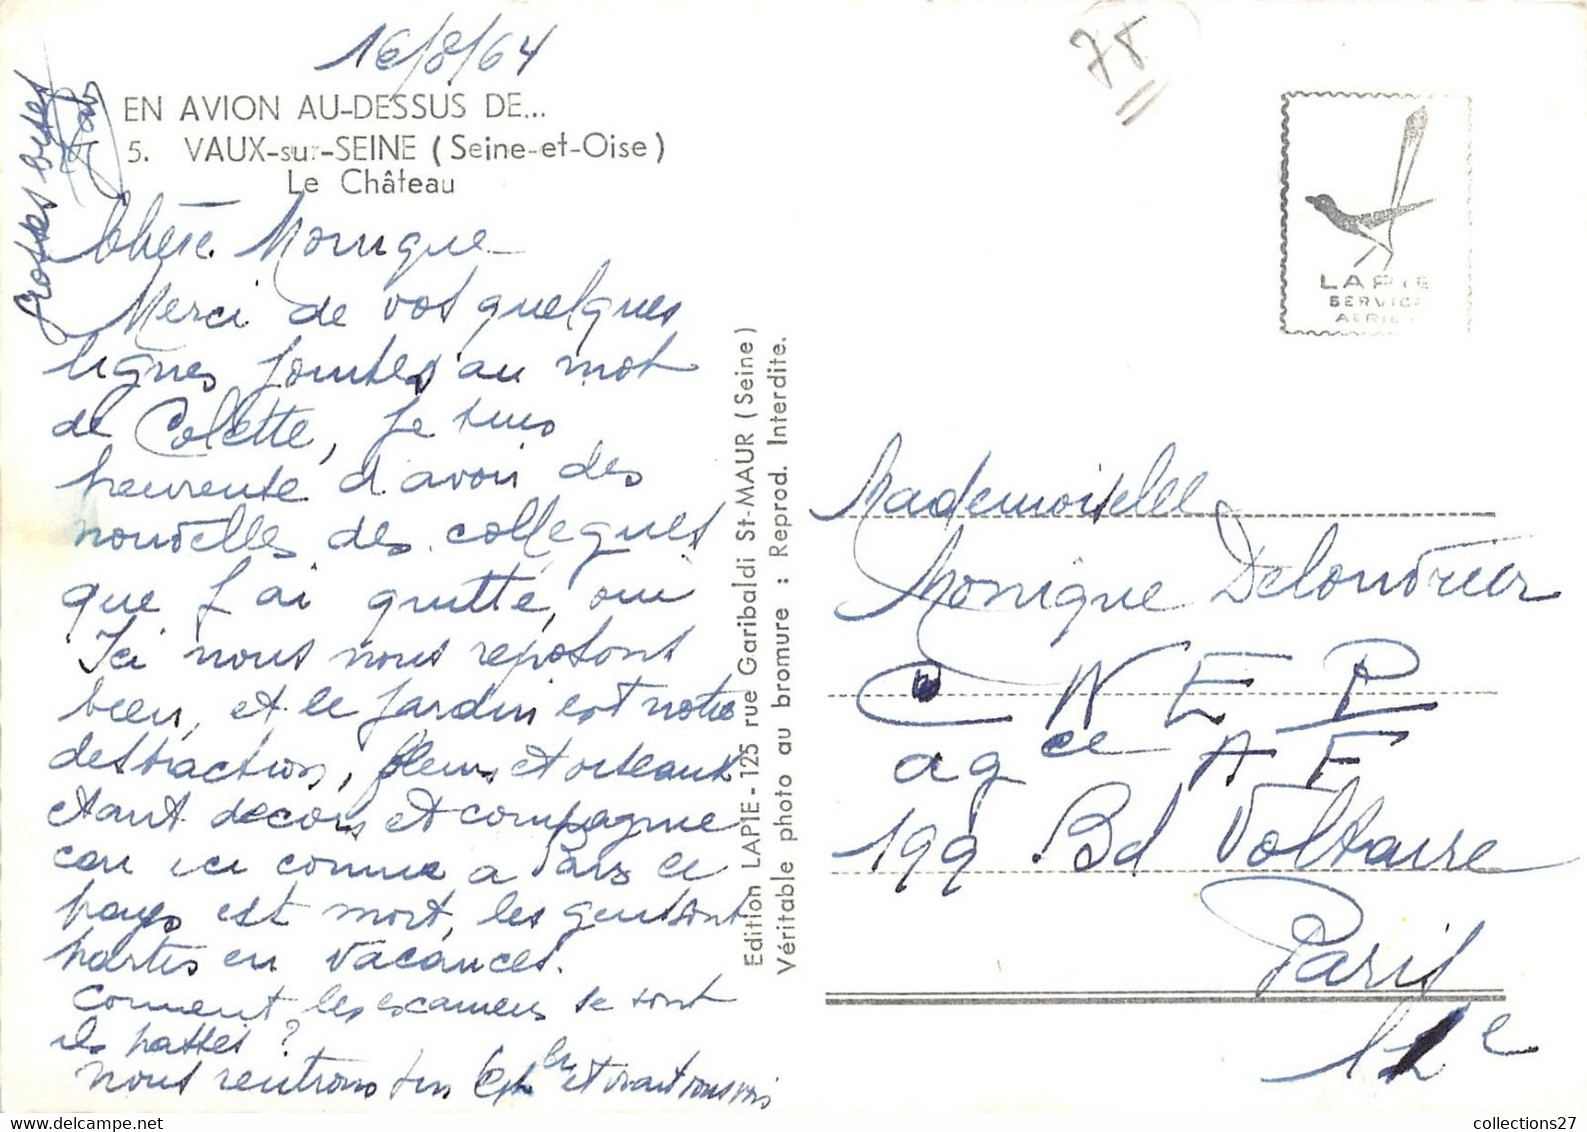 16/8/64
EN AVION AU-DESSUS DE...
5. VAUX-sur-SEINE (Seine-et-Oise)
Le Château
Chère Monique
Merci de vos quelques
lignes jointes au mot
de Colette, je suis
heureuse d'avoir des
nouvelles des collègues
que j'ai quitté, oui
Ici nous nous reposons
bien, et le jardin est notre
distraction, fleurs et oiseaux
étant décors et compagnie
car ici comme a Paris ce
pays est mort, les gens sont
partis en vacances.
Comment les examens se sont
ils passés ?
nous rentrons fin et vous
grosses bises
Edition LAPIE - 125 rue Garibaldi St-MAUR (Seine)
Véritable photo au bromure : Reprod. Interdite.
78
LAPIE
SERVICE
AERIEN
Mademoiselle
Monique Delouvrier
C N E P
agce A F
199 Bd Voltaire
Paris
11e
collections27